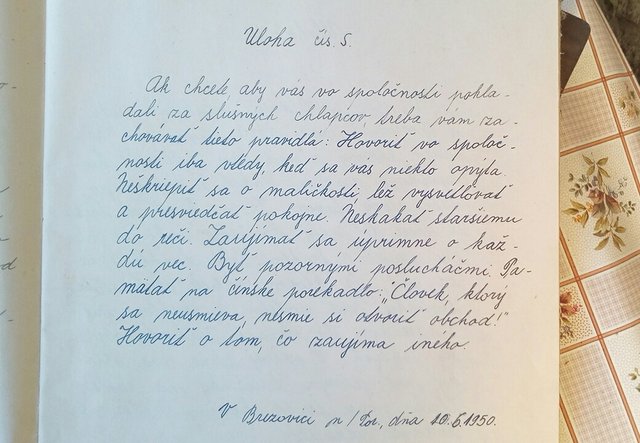 Úloha čís. 5.
Ak chcete aby vás vo spoločnosti pokla-
dali za slušných chlapcov, treba vám za-
chovávať tieto pravidlá: Hovoriť vo spoloč-
nosti iba vtedy, keď sa vás niekto opýta.
Neškriepiť sa o maličkosti, lež vysvetlovať
a presviedčať pokojne. Neskákať staršiemu
do reči. Zaujímať sa úprimne o kaž-
dú vec. Byť pozornými poslucháčmi. Pa-
mätať na čínske porekadlo: „Človek, ktorý
sa neusmieva, nesmie si otvoriť obchod!"
Hovoriť o tom, čo zaujíma iného.
V Brezovici n/Tor., dňa 10.6.1950.